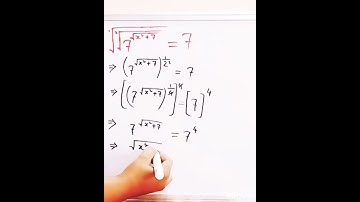 √√7^√(x²+7) = 7
⇒ (7^√(x²+7))^(1/2²) = 7
⇒ [(7^√(x²+7))^(1/4)]^4 = [7]^4
⇒ 7^√(x²+7) = 7^4
⇒ √x²